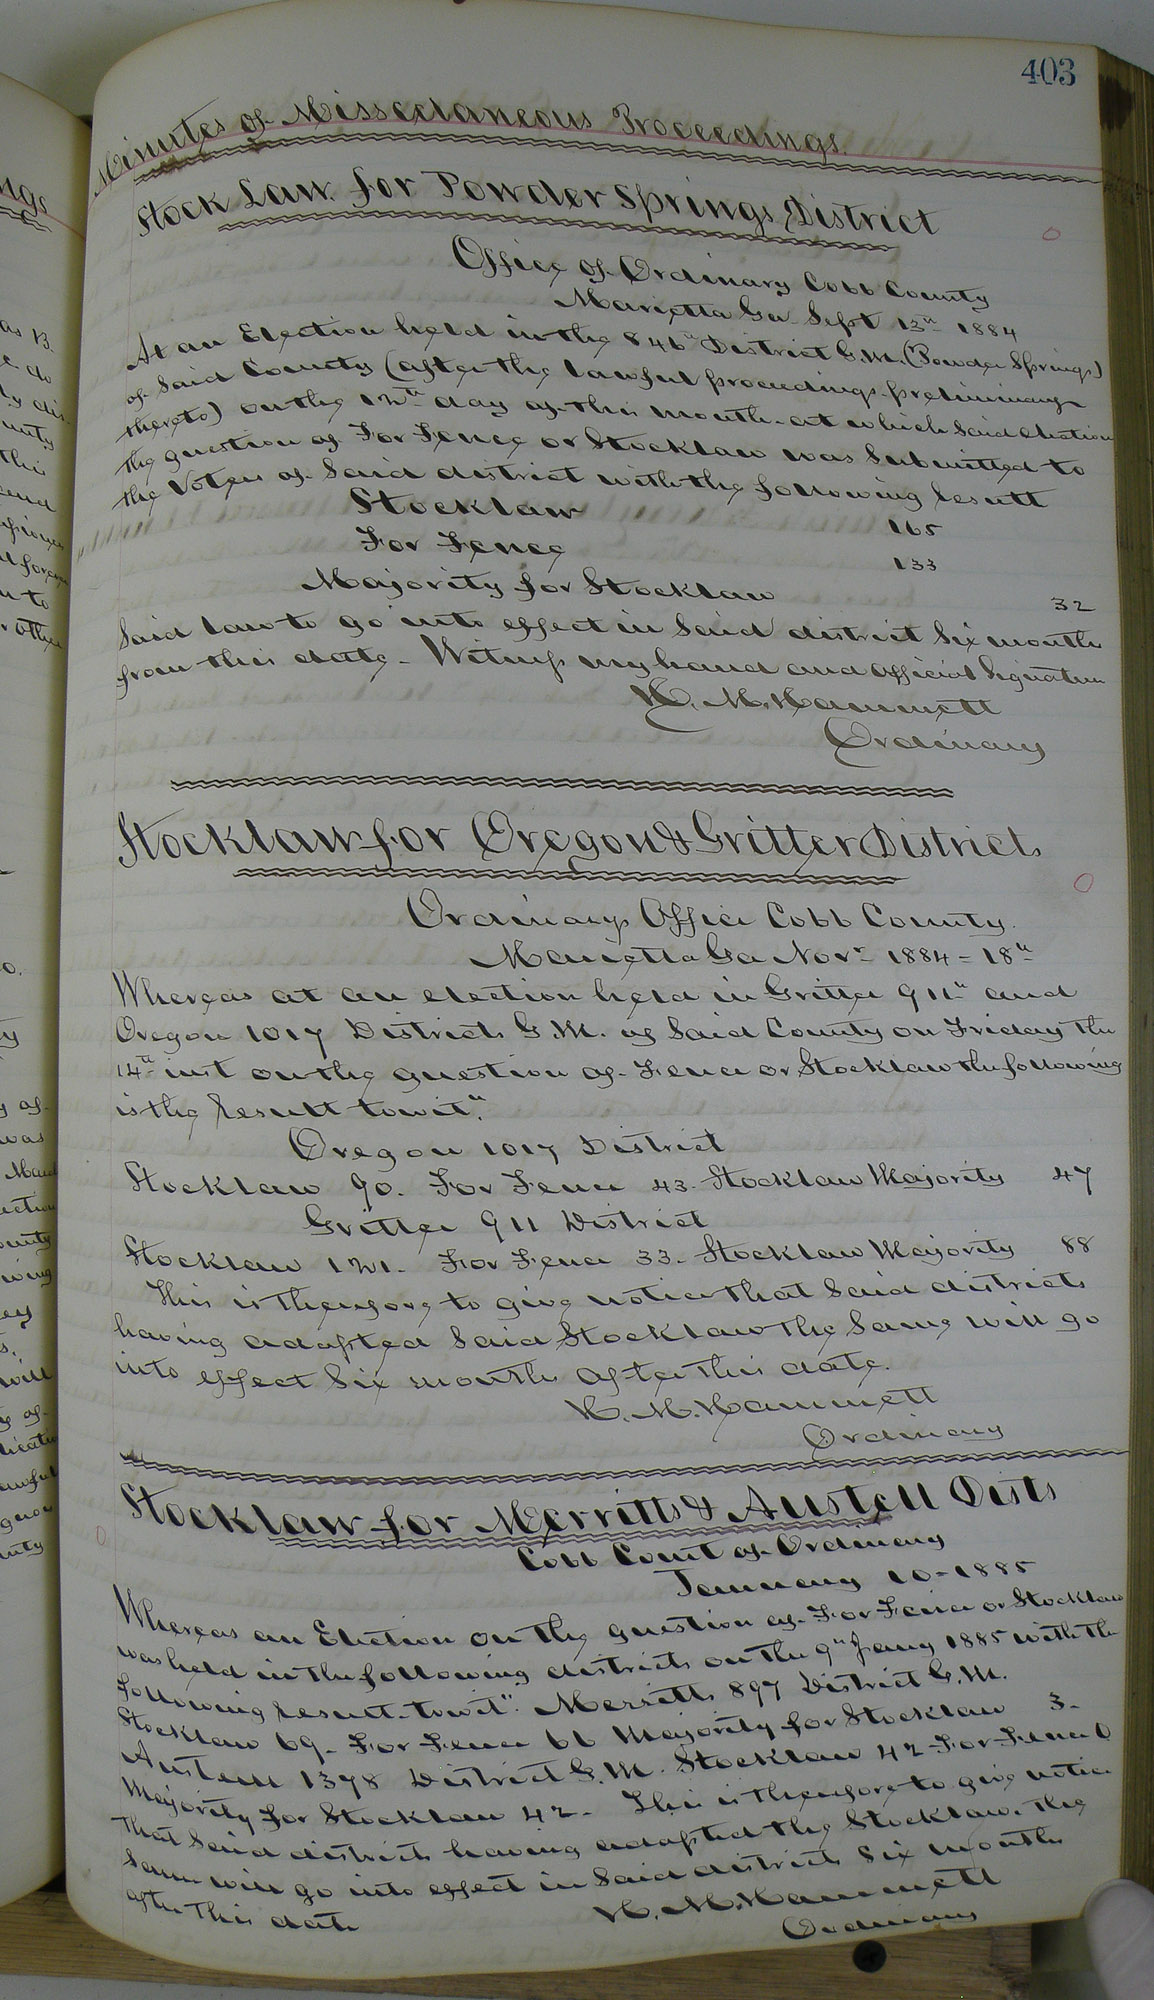 403
Minutes of Misscellaneous Proceedings.
Stock Law. for Powder Springs District
Office of Ordinary Cobb County
Marietta Ga Sept 13th 1884
At an Election held in the 846th District G.M. (Powder Springs)
of Said County (after the lawful proceedings preliminary
thereto) on the 12th day of this month at which Said election
the question of For Fence or Stocklaw was Submitted to
the Voters of Said district with the following result
Stocklaw 165
For Fence 133
Majority for Stocklaw 32
Said law to go into effect in Said district Six months
from this date. Witness my hand and official Signature
H. M. Hammett
Ordinary
Stocklaw for Oregon & Gritter Districts
Ordinarys Office Cobb County.
Marietta Ga Novr 1884 - 18th
Whereas at an election held in Gritter 911th and
Oregon 1017 Districts G.M. of Said County on Friday the
14th inst on the question of Fence or Stocklaw the following
is the result towit"
Oregon 1017 District
Stocklaw 90. For Fence 43. Stocklaw Majority 47
Gritter 911 District
Stocklaw 121. For Fence 33. Stocklaw Majority 88
This is therefore to give notice that Said districts
having adopted Said Stocklaw the Same will go
into effect Six months after this date.
H. M. Hammett
Ordinary
Stocklaw for Merritts & Austell Dists
Cobb Court of Ordinary
January 10 - 1885
Whereas an Election on the question of For Fence or Stocklaw
was held in the following districts on the 9th Jany 1885 with the
following result towit" Merritts 897 District G.M.
Stocklaw 69. For Fence 66 Majority for Stocklaw 3.
Austell 1378 District G.M. Stocklaw 42 For Fence 0
Majority for Stocklaw 42. This is therefore to give notice
that Said districts having adopted the Stocklaw. The
Same will go into effect in Said districts Six months
after this date
H. M. Hammett
Ordinary